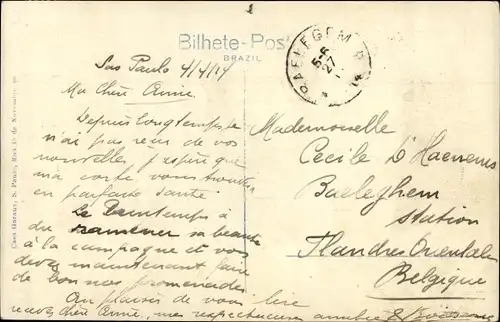 Bilhete-Post
BRAZIL
BAELEGEM
27
Sao Paulo 4/4/27
Ma Chère Amie
Depuis longtemps je
n'ai pas reçu de vos
nouvelles, j'espère que
ma carte vous trouvera
en parfaite santé.
Le Printemps a
du ramener sa beauté
à la campagne et vous
devez maintenant faire
de bonnes promenades
Au plaisir de vous lire
recevez chère Amie, mes respectueuses amitiés
Mademoiselle
Cecile D'Haenens
Baeleghem
Station
Flandres Orientale
Belgique
Casa Garraux, S. Paulo, Rua 15 de Novembro